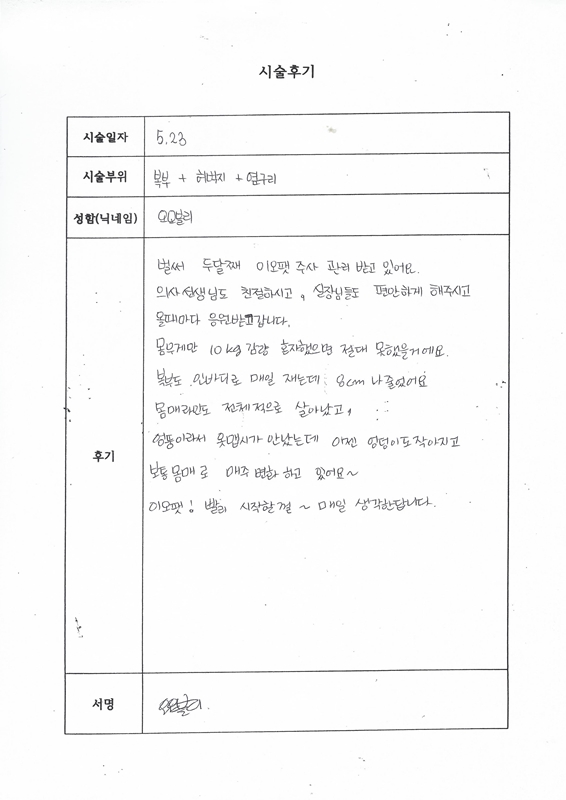 시술후기
시술일자 5.23
시술부위 복부 + 허벅지 + 옆구리
성함(닉네임) 요요발리
후기
벌써 두달째 이오팻 주사 관리 받고 있어요.
의사선생님도 친절하시고, 실장님들도 편안하게 해주시고
올때마다 응원받고갑니다.
몸무게만 10kg 감량 혼자했으면 절대 못했을거에요.
복부도 인바디로 매일 재는데 8cm나 줄었어요
몸매라인도 전체적으로 살아났고,
엉뚱이라서 옷맵시가 안났는데 이젠 엉덩이도작아지고
보통몸매로 매주 변화하고 있어요~
이오팻! 빨리 시작할껄~ 매일 생각한답니다.
서명